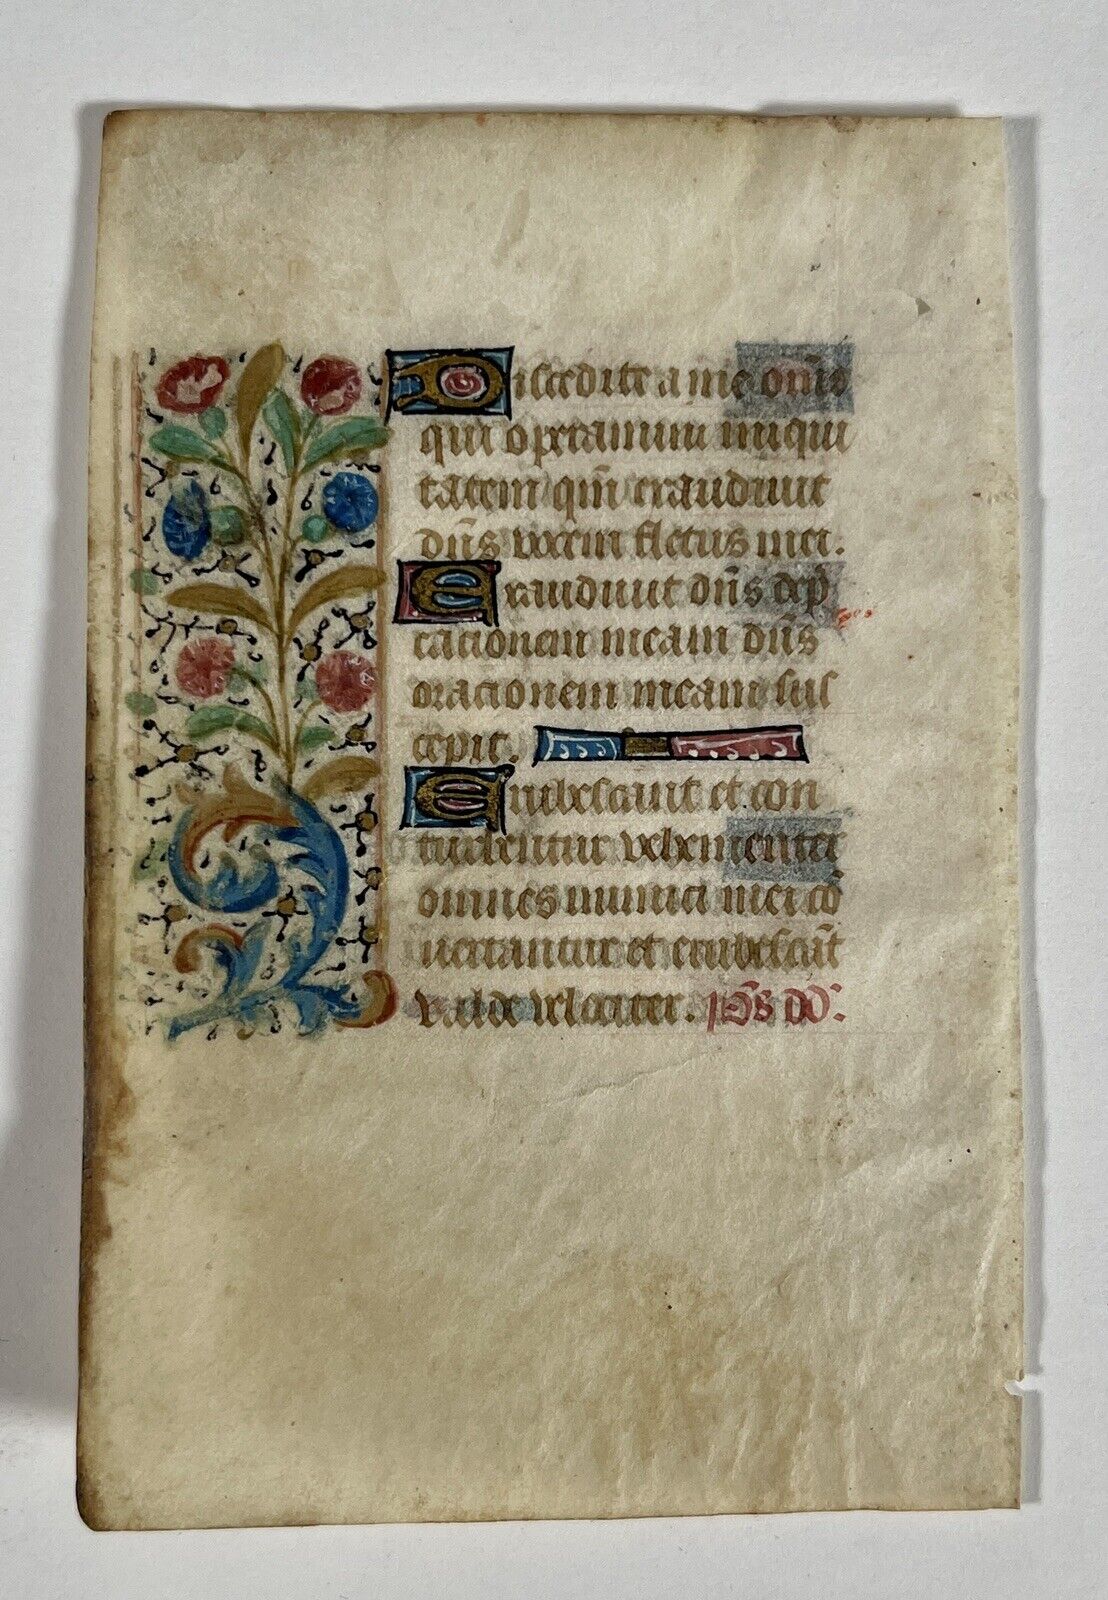 Discedite a me om̄s
qui operamini iniqui
tatem qm̄ exaudiuit
dn̄s vocem fletus mei.
Exaudiuit dn̄s dep̄
cationem meam dn̄s
orationem meam sus
cepit.
Erubescant et con
turbentur vehementer
omnes inimici mei cō
uertantur et erubescāt
valde velociter. ps̄ dd: